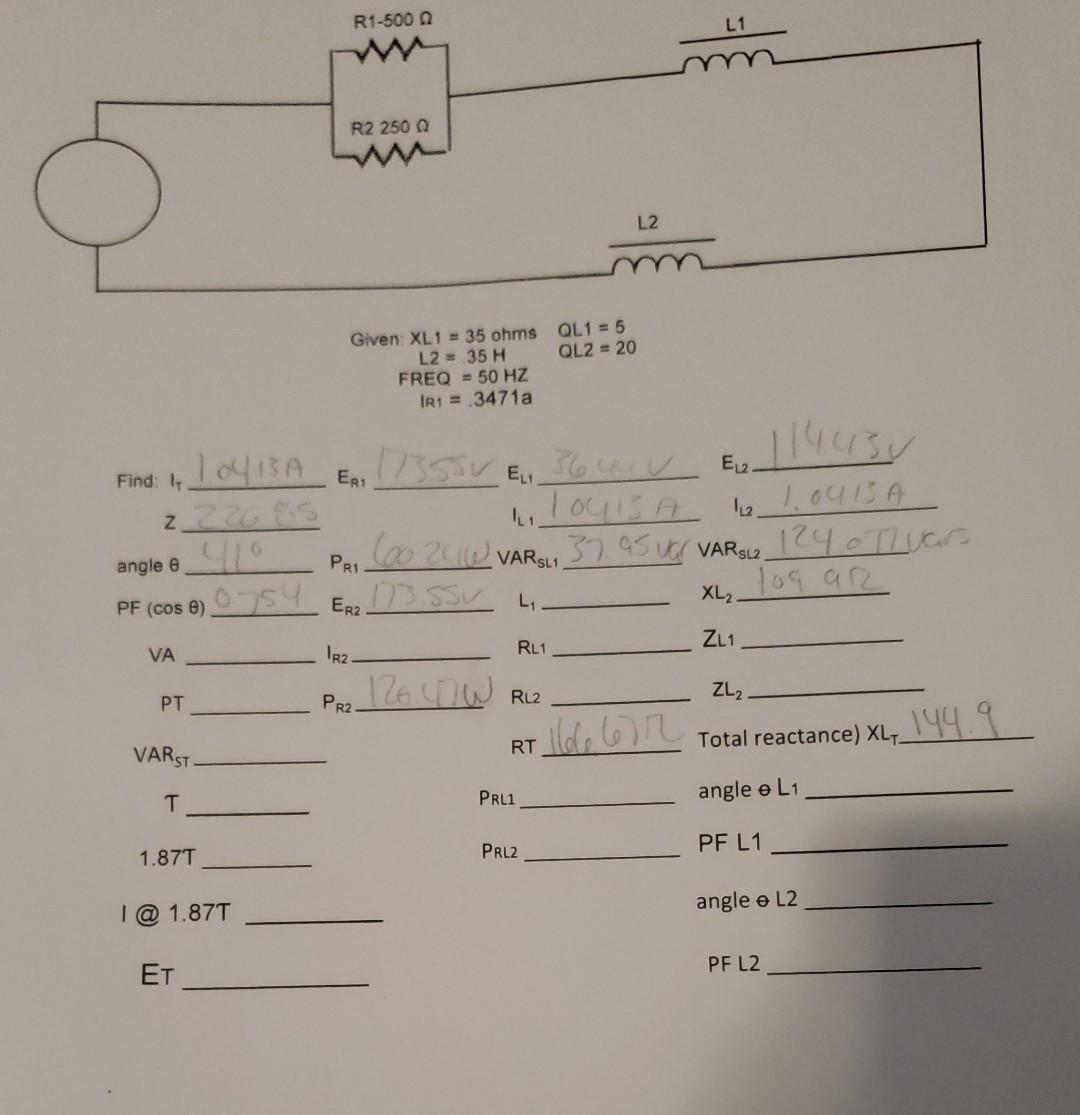 R1-500 Ω
L1
R2 250 Ω
L2
Given: XL1 = 35 ohms QL1 = 5
L2 = .35 H QL2 = 20
FREQ = 50 HZ
IR1 = .3471a
Find: IT 1.0413A ER1 173.55V EL1 36.44V EL2 114.43V
Z 220.85 IL1 1.0413A IL2 1.0413A
angle θ 41° PR1 60.24W VARSL1 37.95var VARSL2 124.077vars
PF (cos θ) 0.754 ER2 173.55V L1 XL2 109.9Ω
VA IR2 RL1 ZL1
PT PR2 120.47W RL2 ZL2
VARST RT 166.67Ω Total reactance) XLT 144.9
T PRL1 angle ɵ L1
1.87T PRL2 PF L1
I @ 1.87T angle ɵ L2
ET PF L2